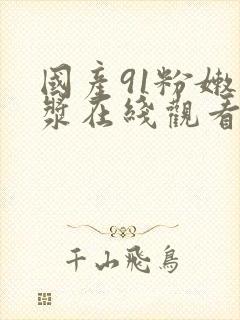 國產91粉嫩
漿在綫觀看
千山飛鳥